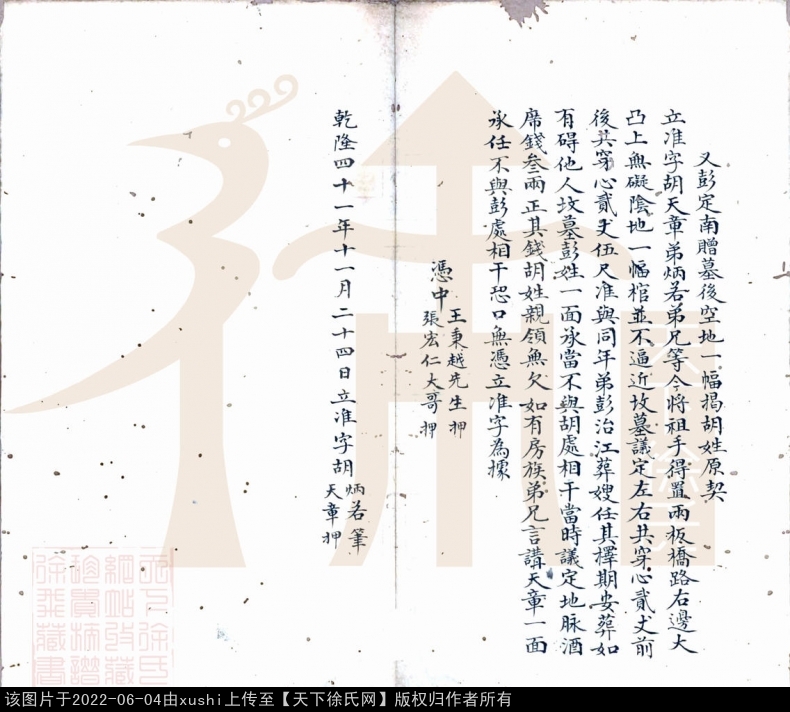 又彭定南贈墓後空地一幅揭胡姓原契
立准字胡天章弟炳若弟兄等今将祖手得置兩板橋路右邊大
凸上無礙陰地一幅棺並不逼近坟墓議定左右共穿心貳丈前
後共穿心貳丈伍尺准與同年弟彭治江葬嫂任其擇期安葬如
有碍他人坟墓彭姓一面承當不與胡處相干當時議定地脉酒
席錢叁兩正其錢胡姓親領無欠如有房族弟兄言講天章一面
承任不與彭處相干恐口無憑立准字為據
憑中
王秉越先生押
張宏仁大哥押
乾隆四十一年十一月二十四日立准字胡
炳若筆
天章押
天下徐氏
網站收藏
珍貴族譜
徐飛藏書
该图片于2022-06-04由xushi上传至【天下徐氏网】版权归作者所有